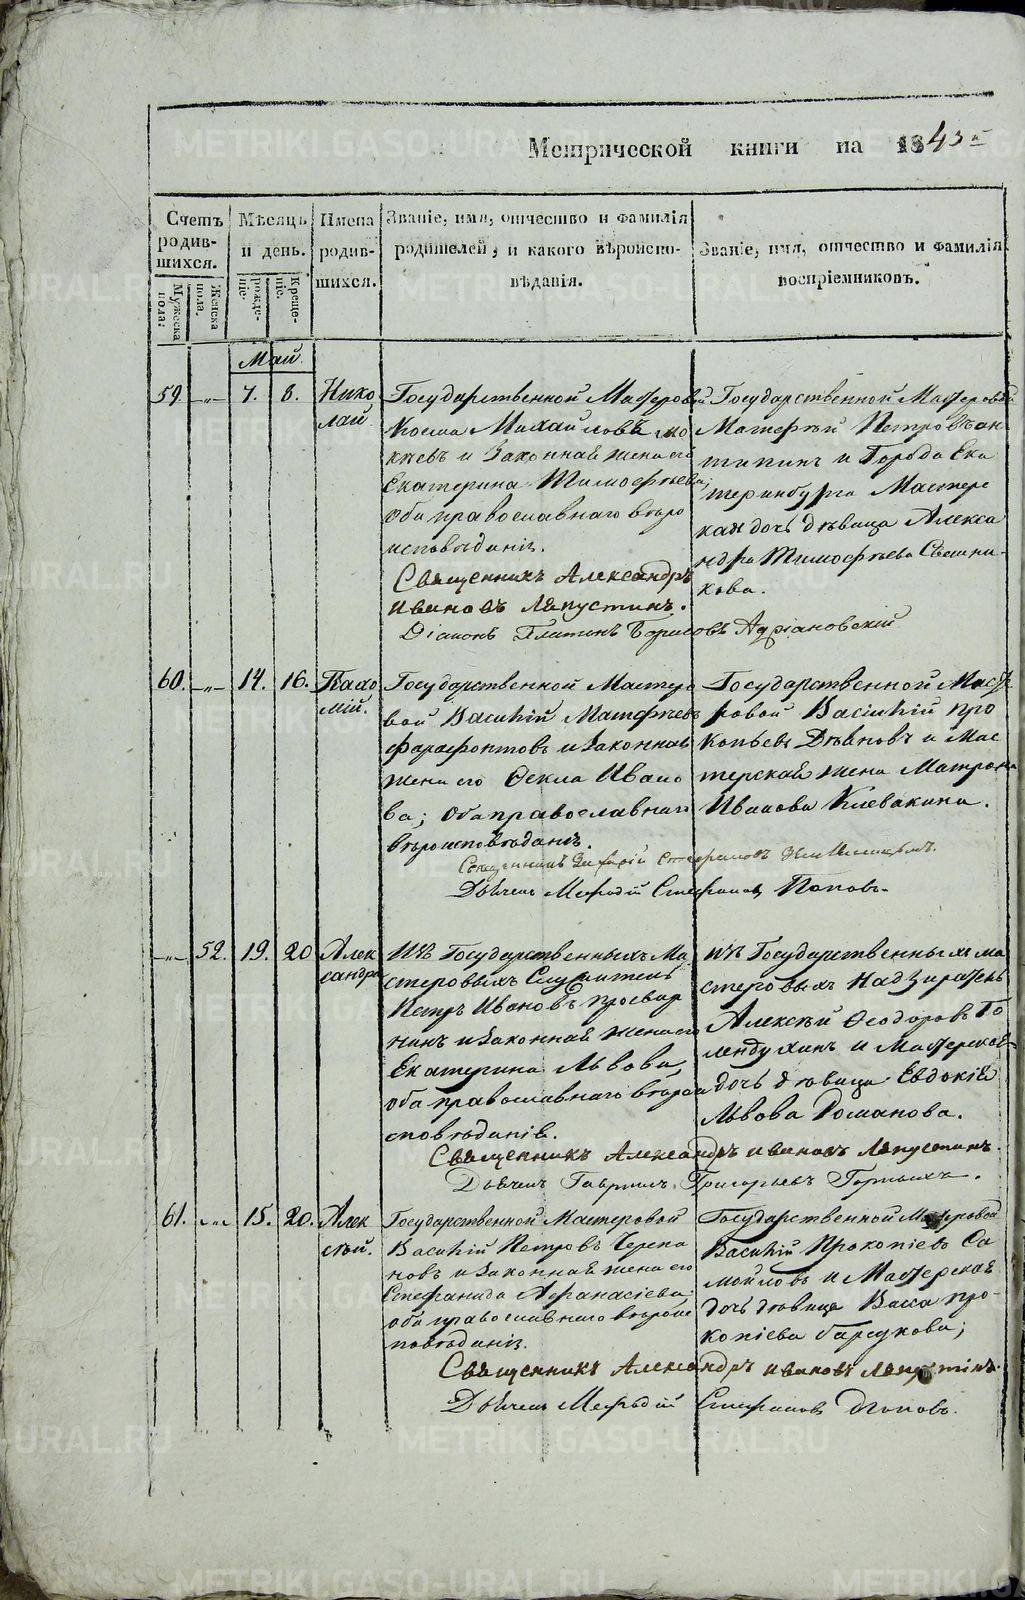 Метрической книги на 1843й
Счетъ родив-шихся.
Мужеска пола:
Женска пола.
Мѣсяцъ и день.
рожде-ніе.
Креще-ніе.
Имена родив-шихся.
Званіе, имя, отчество и фамилія
родителей, и какого вѣроиспо-
вѣданія.
Званіе, имя, отчество и фамилія
воспріемниковъ.
Май.
59 -„- 7. 8.
Нико
лай
Государственной Мастеровой
Косма Михайловъ
и законная жена его
Екатерина Тимофѣева;
оба православнаго вѣро
исповѣданія.
Священникъ Александръ
Ивановъ Ляпустинъ.
Діаконъ Платонъ Борисовъ Адріановскій
Государственной Мастеровой
Матфей Петровъ Ан
типинъ и города Ека
теринбурга Мастерс
кая дочь дѣвица Алекса
ндра Тимофѣева Свѣшни-
кова.
60. -„- 14. 16.
Пахо
мій.
Государственной Мастеро
вой Василій Матфѣевъ
Фарафонтовъ и законная
жена его Ѳекла Ивано
ва; оба православнаго
вѣроисповѣданія.
Священникъ Захарій Стефановъ
Дьячекъ Мефодій Стефановъ Поповъ.
Государственной Масте
ровой Василій Про
копьевъ и Мас
терская жена Матрона
Иванова Клевакина.
-„- 52. 19. 20
Алек
сандра
Изъ Государственныхъ Ма
стеровыхъ Служитель
Петръ Ивановъ Просвир
нинъ и законная жена его
Екатерина Львова,
оба православнаго вѣрои
сповѣданія.
Священникъ Александръ Ивановъ Ляпустинъ.
Дьячекъ Гавріилъ Григорьевъ
изъ Государственныхъ ма
стеровыхъ Надзиратель
Алексѣй Ѳеодоровъ Го
лендухинъ и Мастерская
дочь дѣвица Евдокія
Львова Романова.
61. -„- 15. 20.
Алек
сѣй.
Государственной Мастеровой
Василій Петровъ Черепа
новъ и законная жена его
Стефанида Афанасіева
оба православнаго вѣроис
повѣданія.
Священникъ Александръ Ивановъ Ляпустинъ.
Дьячекъ Мефодій Стефановъ Поповъ.
Государственной Мастеровой
Василій Прокопіевъ Са
мойловъ и Мастерская
дочь дѣвица Васса Про-
копіева;
METRIKI.GASO-URAL.RU